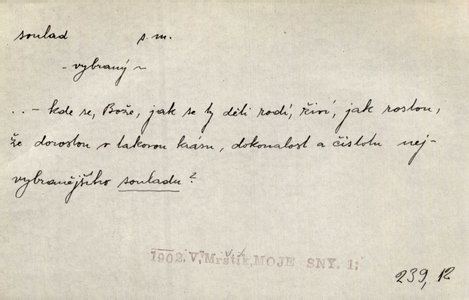 soulad s. m.
- vybraný ~
.. - kde se, Bože, jak se ty děti rodí, živí, jak rostou,
že dorostou v takovou krásu, dokonalost a čistotu nej-
vybranějšího souladu?
1902. V. Mrštík, MOJE SNY. 1;
239, 12